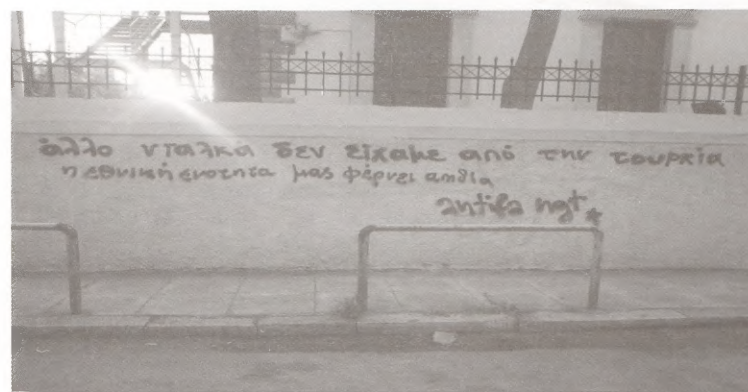 άλλο νταλκα δεν είχαμε από την τουρκία
η εθνική ενοτητα μας φέρνει αηδια
antifa ngt